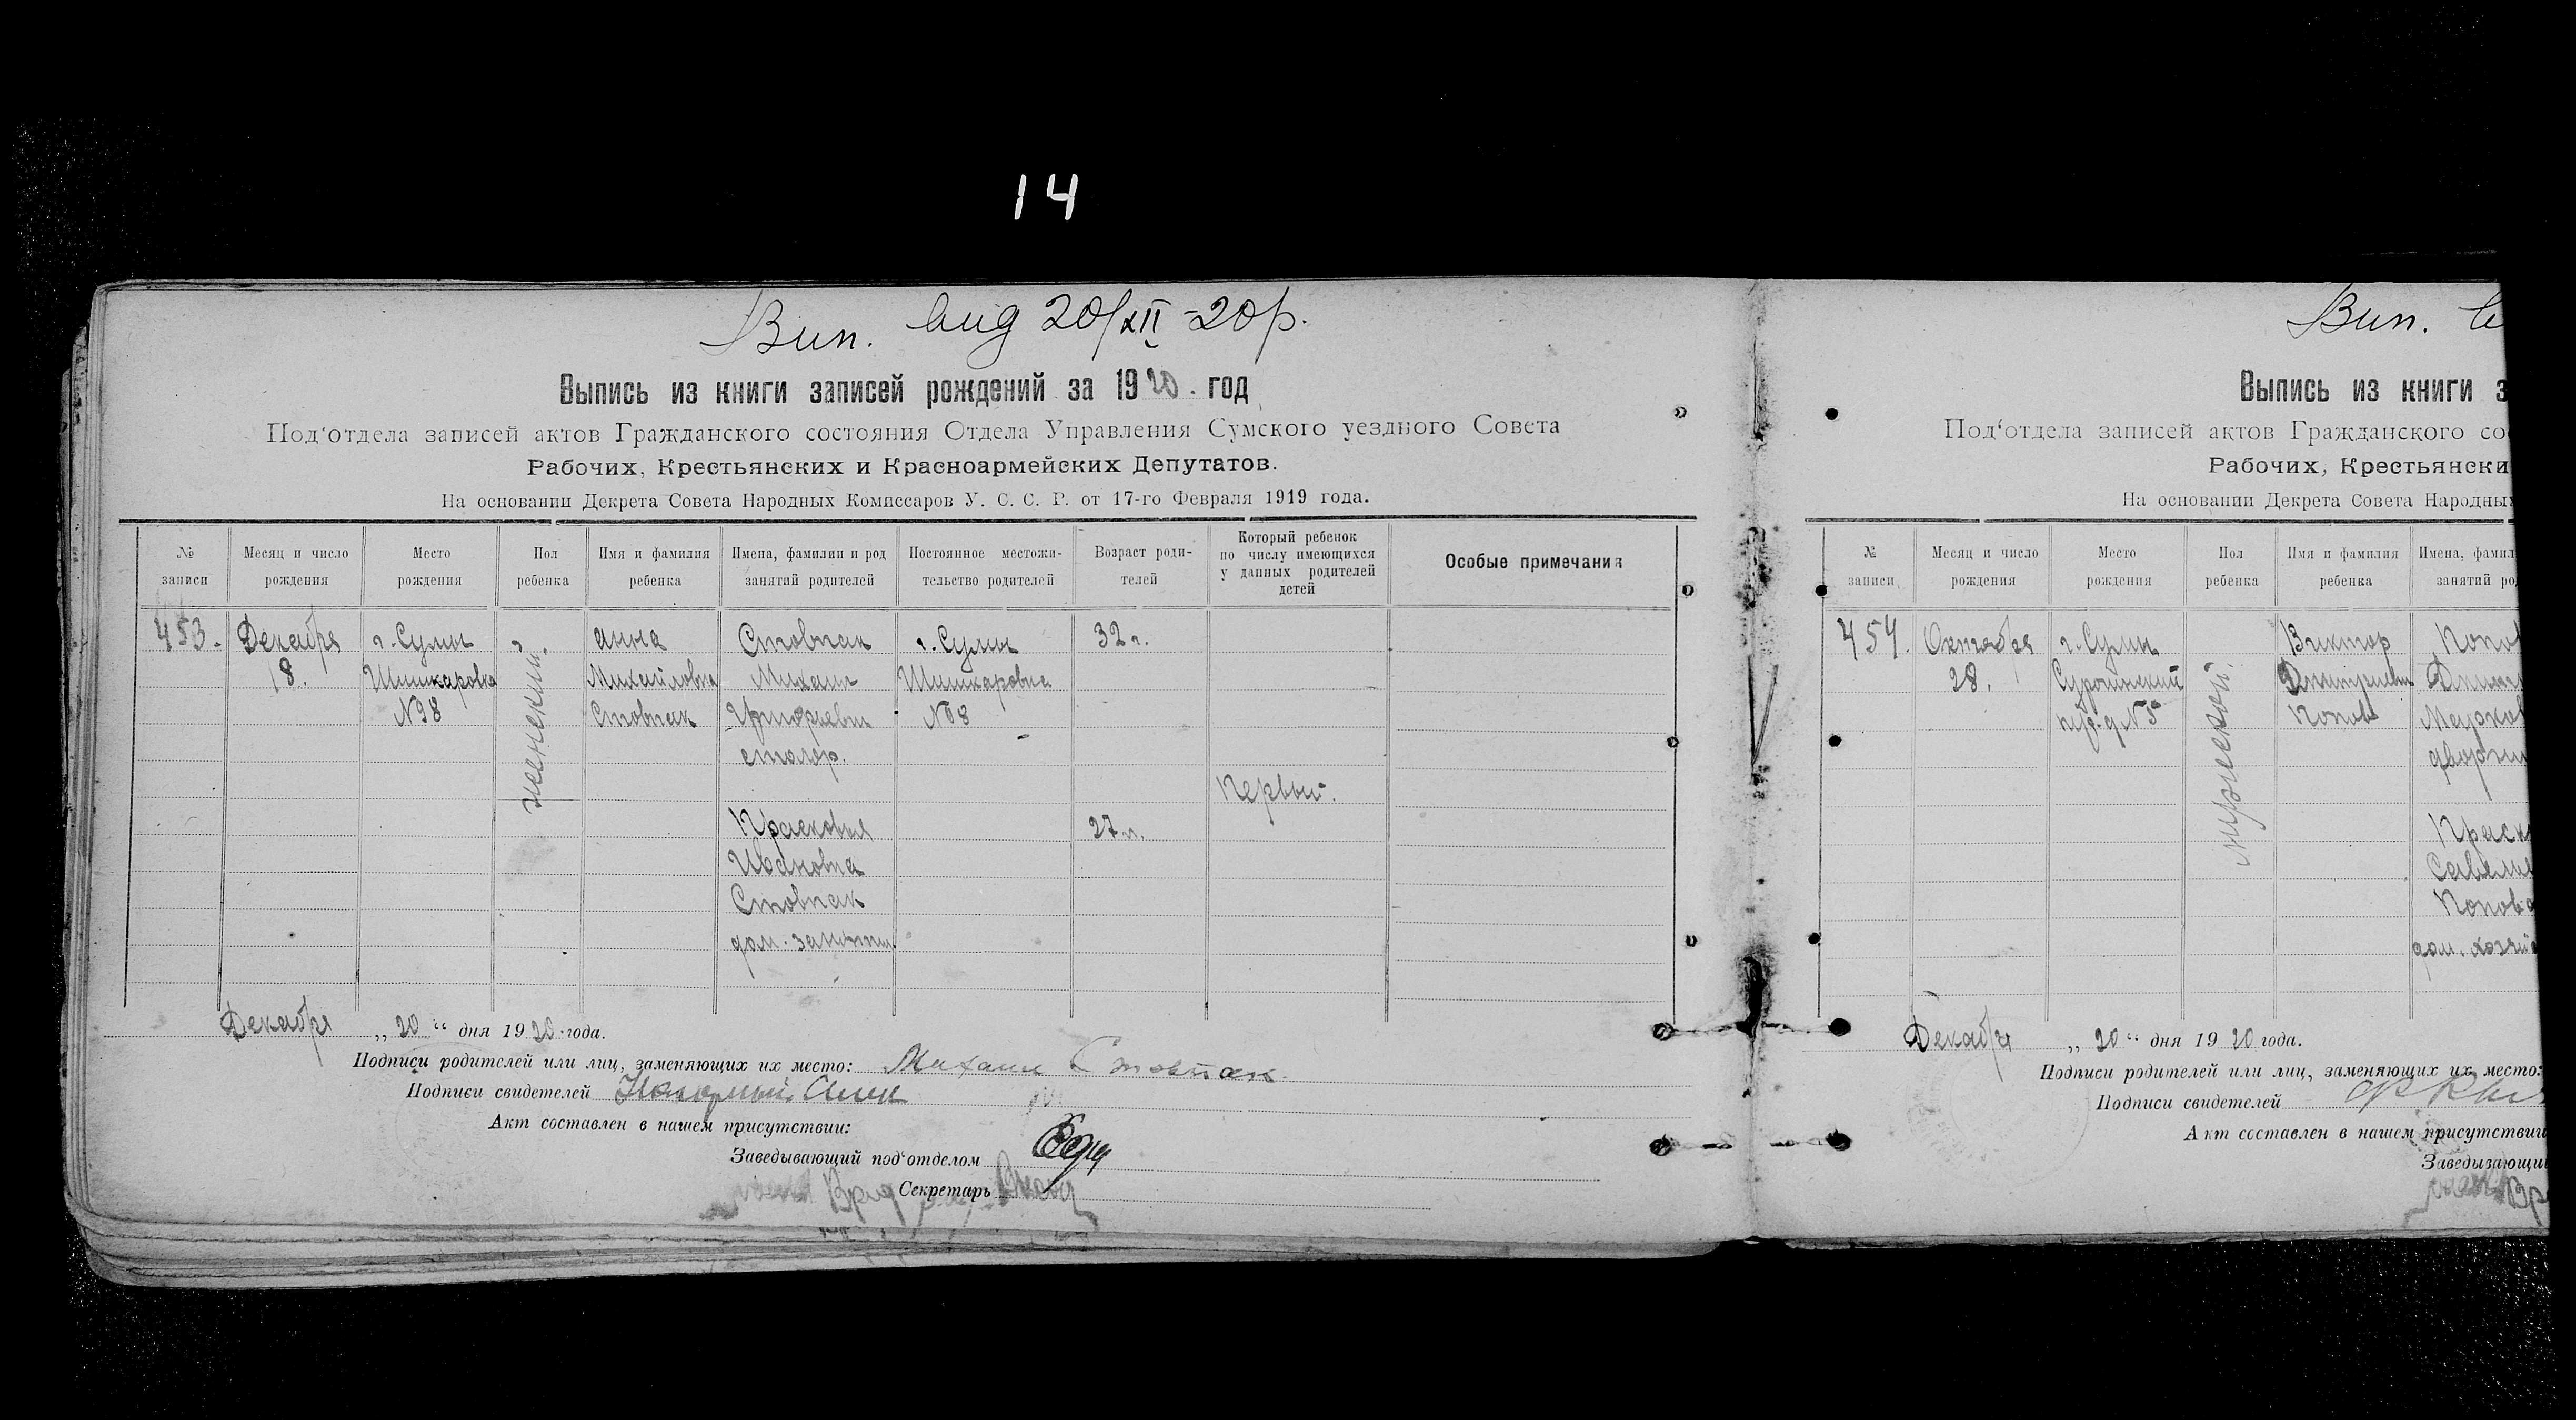 14
Вип. вид 20/XII-20р.
Выпись из книги записей рождений за 1920. год
Под'отдела записей актов Гражданского состояния Отдела Управления Сумского уездного Совета
Рабочих, Крестьянских и Красноармейских Депутатов.
На основании Декрета Совета Народных Комиссаров У. С. С. Р. от 17-го Февраля 1919 года.
№ записи
Месяц и число рождения
Место рождения
Пол ребенка
Имя и фамилия ребенка
Имена, фамилии и род занятий родителей
Постоянное местожительство родителей
Возраст родителей
Который ребенок по числу имеющихся у данных родителей детей
Особые примечания
453.
Декабря
8.
г. Сумы
Шишкаровка
№98
женский.
анна
Михайловна
Стовпак
Стовпак
Михаил
Григорьевич
столяр.
Прасковья
Ивановна
Стовпак
дом. занятия
г. Сумы
Шишкаровка
32 г.
27 г.
Первый.
Декабря „20“ дня 1920 года.
Подписи родителей или лиц, заменяющих их место: Михаил Стовпак
Подписи свидетелей
Акт составлен в нашем присутствии:
Заведывающий под'отделом
Секретарь
Вип. в
Выпись из книги з
Под'отдела записей актов Гражданского со
Рабочих, Крестьянски
На основании Декрета Совета Народных
№ записи
Месяц и число рождения
Место рождения
Пол ребенка
Имя и фамилия ребенка
Имена, фамил
занятий ро
454.
Октября
28.
г. Сумы
Суромский
№5
мужской.
Виктор
Дмитриевич
Попов
Попов
Дмит
Марков
дворни
Праско
Савелье
Попова
дом. хозяй
Декабря „20“ дня 1920 года.
Подписи родителей или лиц, заменяющих их место:
Подписи свидетелей
Акт составлен в нашем присутствии
Заведывающи